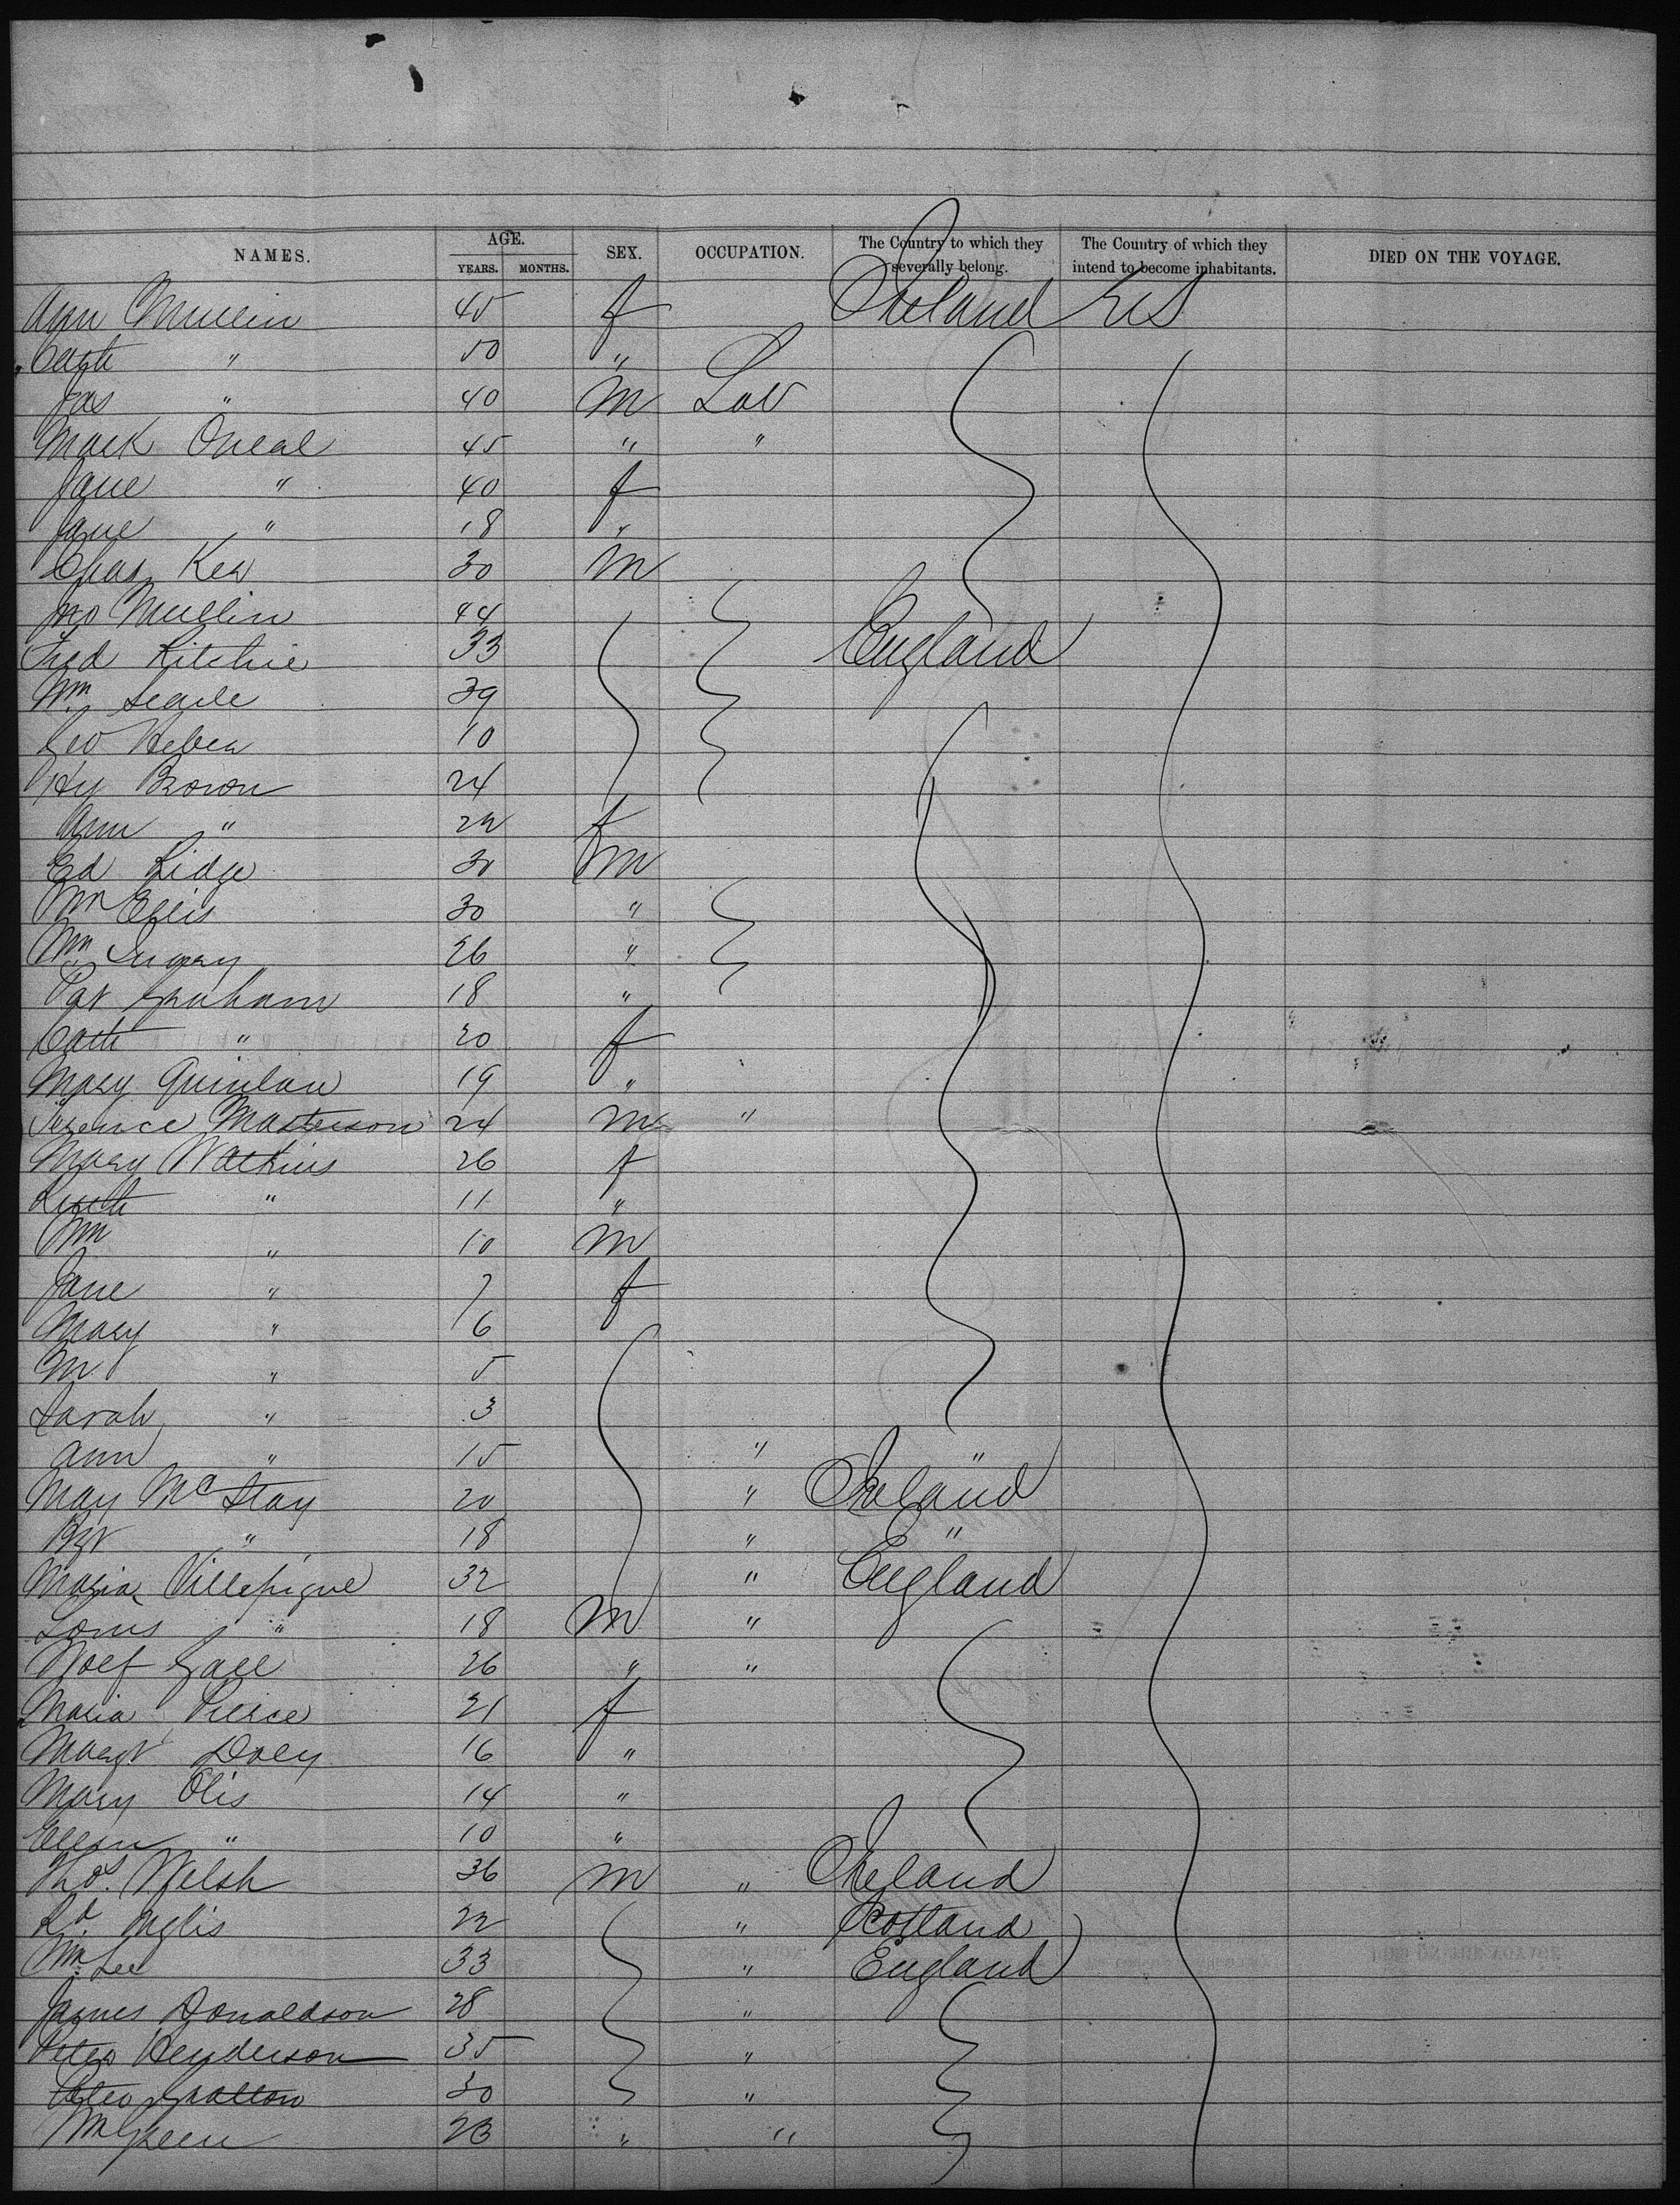 NAMES. AGE. YEARS. MONTHS. SEX. OCCUPATION. The Country to which they severally belong. The Country of which they intend to become inhabitants. DIED ON THE VOYAGE.
Ann Mullin 45 f Ireland US
Cath " 50 "
Jas " 40 m Lab
Mark Oneal 45 " "
Jane " 40 f
Jane " 18 "
Chas Ker 30 m
Jno Mullin 44
Fred Ritchie 33 England
Wm Searle 39
Geo 10
Hy Brown 24
Ann " 22 f
Ed Lidge 30 m
Wm Ellis 30 "
Wm 26 "
Pat Graham 18 "
Cath " 20 f
Mary Quinlan 19 "
Terence Masterson 24 m "
Mary Watkins 26 f
" 11 "
Wm " 10 m
Jane " 7 f
Mary " 6
M " 5
Sarah " 3
Ann " 15 " "
May McStay 20 " Ireland
Bgt " 18 " "
Maria Villepigue 32 " England
Louis " 18 m "
Wolf Gall 26 " "
Maria Pierce 21 f
Margt Doley 16 "
Mary Olis 14 "
Ellen " 10 "
Thos. Welsh 36 m " Ireland
Rd. Inglis 22 " Scotland
Wm Lee 33 " England
James Donaldson 28 "
Peter Henderson 35 "
Peter 30 "
Wm Green 23 " "